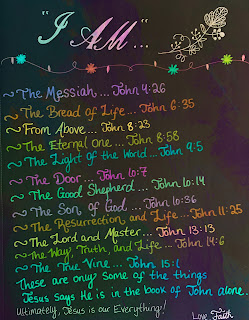 "I AM"
~The Messiah... John 4:26
~The Bread of Life... John 6:35
~From Above... John 8:23
~The Eternal One... John 8:58
~The Light of the World... John 9:5
~The Door... John 10:7
~The Good Shepherd... John 10:14
~The Son of God... John 10:36
~The Resurrection, and Life... John 11:25
~The Lord and Master... John 13:13
~The Way, Truth, and Life... John 14:6
~The True Vine... John 15:1
These are only some of the things
Jesus says He is in the book of John alone..
Ultimately, Jesus is our Everything!
Love, Faith